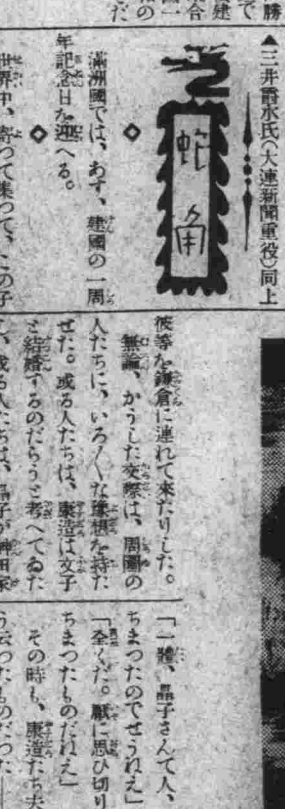 勝
で
建
合
▲三井霞水氏(大連新聞重役)同上
蛇角
◇
滿洲國では、あす、建國の一周
年記念日を迎へる。
◇
世界中、寄つて集つて、この子
彼等を鎌倉に連れて來たりした。
無論、かうした交際は、周圍の
人たちに、いろ〱な豫想を持た
せた。或る人たちは、康造は文子
と結婚するのだらうと考へてゐた
、或る人たちは、晶子が神田家
「一體、晶子さんて人、
ちまつたのでせうねえ」
「全くだ。厭に思ひ切り
ちまつたものだねえ」
その時も、康造たち夫
う云つたものだつた——